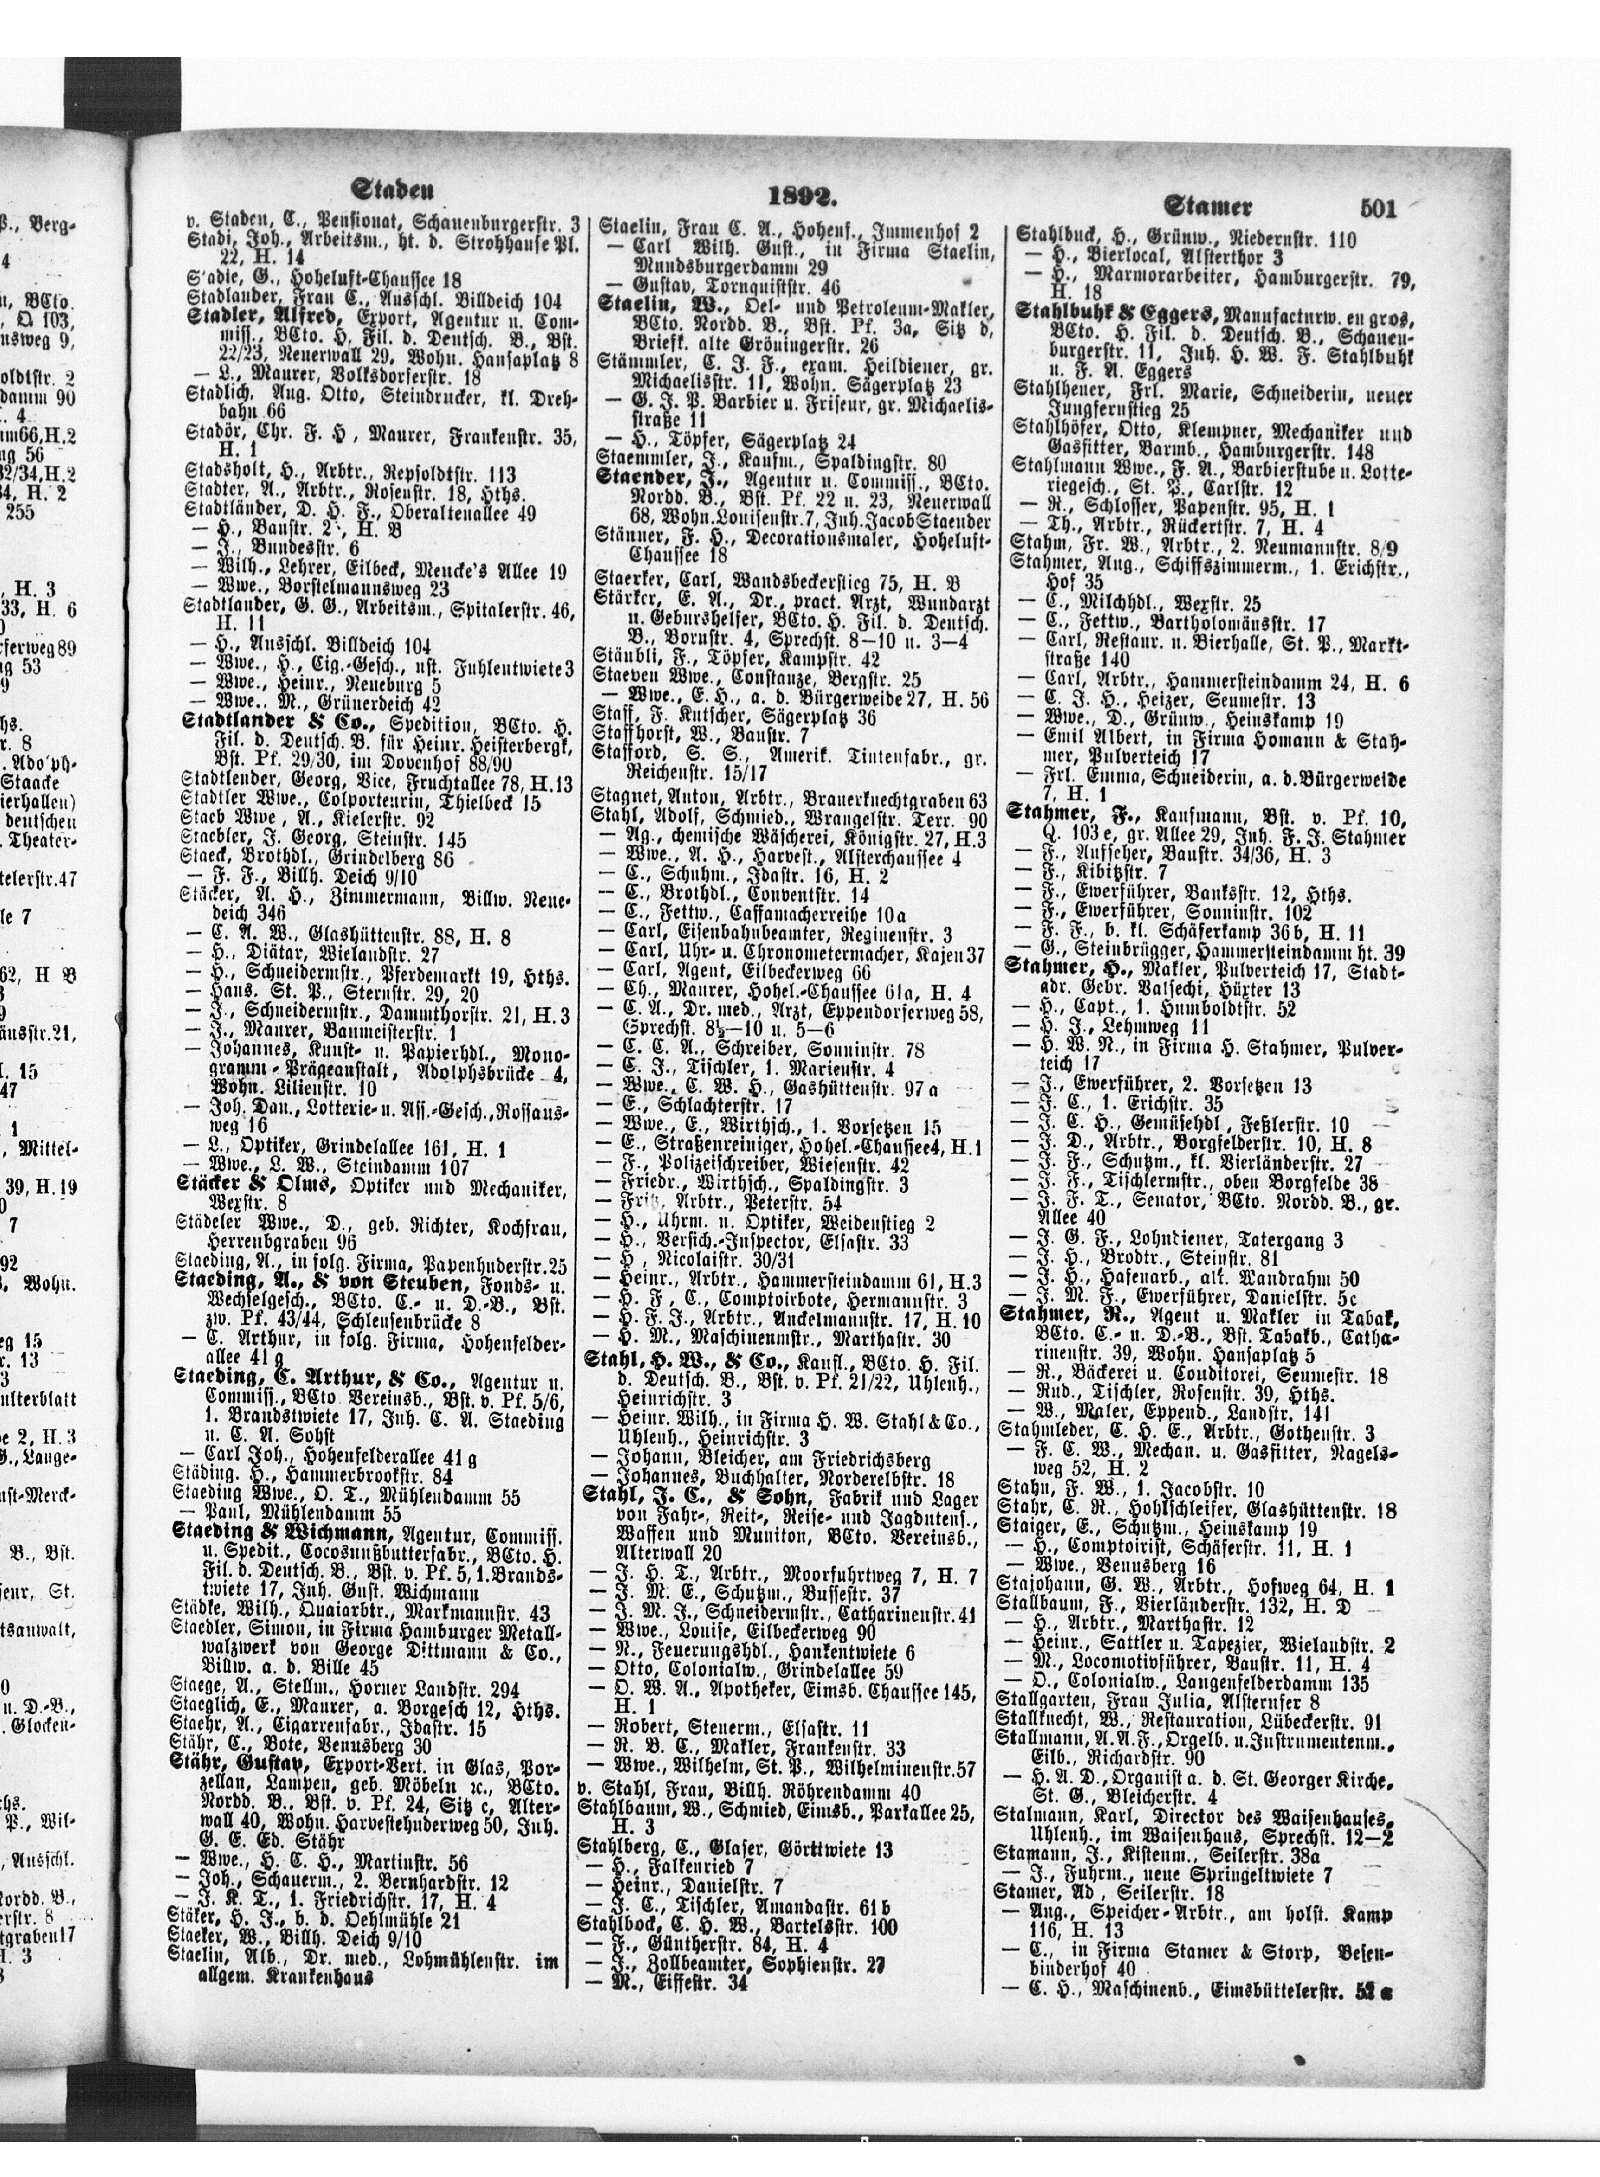 Staden
1892.
Stamer 501
v. Staden, C., Pensionat, Schauenburgerstr. 3
Stadi, Joh., Arbeitsm., ht. d. Strohhause Pl.
22, H. 14
Stadie, G., Hoheluft-Chaussee 18
Stadlander, Frau C., Ausschl. Billdeich 104
Stadler, Alfred, Export, Agentur u. Com-
miss., BCto. H. Fil. d. Deutsch. B., Bst.
22/23, Neuerwall 29, Wohn. Hansaplatz 8
— L., Maurer, Volksdorferstr. 18
Stadlich, Aug. Otto, Steindrucker, kl. Dreh-
bahn 66
Stadör, Chr. F. H., Maurer, Frankenstr. 35,
H. 1
Stadsholt, H., Arbtr., Repsoldtstr. 113
Stadter, A., Arbtr., Rosenstr. 18, Hths.
Stadtländer, D. H. F., Oberaltenallee 49
— H., Baustr. 2, H. B
— J., Bundesstr. 6
— Wilh., Lehrer, Eilbeck, Meucke's Allee 19
— Wwe., Borstelmannsweg 23
Stadtlander, G. G., Arbeitsm., Spitalerstr. 46,
H. 11
— H., Ausschl. Billdeich 104
— Wwe., H., Cig.-Gesch., nst. Fuhlentwiete 3
— Wwe., Heinr., Neueburg 5
— Wwe., M., Grünerdeich 42
Stadtlander & Co., Spedition, BCto. H.
Fil. d. Deutsch. B. für Heinr. Heisterbergk,
Bst. Pf. 29/30, im Dovenhof 88/90
Stadtlender, Georg, Vice, Fruchtallee 78, H. 13
Stadtler Wwe., Colporteurin, Thielbeck 15
Staeb Wwe, A., Kielerstr. 92
Staebler, J. Georg, Steinstr. 145
Staeck, Brothdl., Grindelberg 86
— F. F., Billh. Deich 9/10
Stäcker, A. H., Zimmermann, Billw. Neue-
deich 346
— C. A. W., Glashüttenstr. 88, H. 8
— H., Diätar, Wielandstr. 27
— H., Schneidermstr., Pferdemarkt 19, Hths.
— Hans, St. P., Sternstr. 29, 20
— J., Schneidermstr., Dammthorstr. 21, H. 3
— J., Maurer, Baumeisterstr. 1
— Johannes, Kunst- u. Papierhdl., Mono-
gramm-Prägeanstalt, Adolphsbrücke 4,
Wohn. Lilienstr. 10
— Joh. Dan., Lotterie- u. Ass.-Gesch., Rossaus-
weg 16
— L., Optiker, Grindelallee 161, H. 1
— Wwe., L. W., Steindamm 107
Stäcker & Olms, Optiker und Mechaniker,
Wexstr. 8
Städeler Wwe., D., geb. Richter, Kochfrau,
Herrengraben 96
Staeding, A., in folg. Firma, Papenhuderstr. 25
Staeding, A., & von Steuben, Fonds- u.
Wechselgesch., BCto. C.- u. D.-B., Bst.
zw. Pf. 43/44, Schleusenbrücke 8
— C. Arthur, in folg. Firma, Hohenfelder-
allee 41 g
Staeding, C. Arthur, & Co., Agentur u.
Commiss., BCto Vereinsb., Bst. v. Pf. 5/6,
1. Brandstwiete 17, Inh. C. A. Staeding
u. C. A. Sohst
— Carl Joh., Hohenfelderallee 41 g
Städing, H., Hammerbrookstr. 84
Staeding Wwe., O. T., Mühlendamm 55
— Paul, Mühlendamm 55
Staeding & Wichmann, Agentur, Commiss.
u. Spedit., Cocosnußbutterfabr., BCto. H.
Fil. d. Deutsch. B., Bst. v. Pf. 5, 1. Brands-
twiete 17, Inh. Gust. Wichmann
Städke, Wilh., Quaiarbtr., Markmannstr. 43
Staedler, Simon, in Firma Hamburger Metall-
walzwerk von George Dittmann & Co.,
Billw. a. d. Bille 45
Staege, A., Stellm., Horner Landstr. 294
Staeglich, E., Maurer, a. Borgesch 12, Hths.
Staehr, A., Cigarrenfabr., Idastr. 15
Stähr, C., Bote, Venusberg 30
Stähr, Gustav, Export-Vert. in Glas, Por-
zellan, Lampen, geb. Möbeln ꝛc., BCto.
Nordd. B., Bst. v. Pf. 24, Sitz c, Alter-
wall 40, Wohn. Harvestehuderweg 50, Inh.
G. E. Ed. Stähr
— Wwe., H. C. H., Martinstr. 56
— Joh., Schauerm., 2. Bernhardstr. 12
— J. K. T., 1. Friedrichstr. 17, H. 4
Stäker, H. J., b. d. Oehlmühle 21
Staeker, W., Billh. Deich 9/10
Staelin, Alb., Dr. med., Lohmühlenstr. im
allgem. Krankenhaus
Staelin, Frau C. A., Hohenf., Immenhof 2
— Carl Wilh. Gust., in Firma Staelin,
Mundsburgerdamm 29
— Gustav, Tornquiststr. 46
Staelin, W., Oel- und Petroleum-Makler,
BCto. Nordd. B., Bst. Pf. 3a, Sitz d,
Briefk. alte Gröningerstr. 26
Stämmler, C. J. F., exam. Heildiener, gr.
Michaelisstr. 11, Wohn. Sägerplatz 23
— G. J. P. Barbier u. Friseur, gr. Michaelis-
straße 11
— H., Töpfer, Sägerplatz 24
Staemmler, J., Kaufm., Spaldingstr. 80
Staender, J., Agentur u. Commiss., BCto.
Nordd. B., Bst. Pf. 22 u. 23, Neuerwall
68, Wohn. Louisenstr. 7, Inh. Jacob Staender
Stänner, F. H., Decorationsmaler, Hoheluft-
Chaussee 18
Staerker, Carl, Wandsbeckerstieg 75, H. B
Stärker, E. A., Dr., pract. Arzt, Wundarzt
u. Geburshelfer, BCto. H. Fil. d. Deutsch.
B., Bornstr. 4, Sprechst. 8—10 u. 3—4
Stäubli, F., Töpfer, Kampstr. 42
Staeven Wwe., Constanze, Bergstr. 25
— Wwe., E. H., a. d. Bürgerweide 27, H. 56
Staff, F. Kutscher, Sägerplatz 36
Staffhorst, W., Baustr. 7
Stafford, S. S., Amerik. Tintenfabr., gr.
Reichenstr. 15/17
Stagnet, Anton, Arbtr., Brauerknechtgraben 63
Stahl, Adolf, Schmied., Wrangelstr. Terr. 90
— Ag., chemische Wäscherei, Königstr. 27, H. 3
— Wwe., A. H., Harvest., Alsterchaussee 4
— C., Schuhm., Idastr. 16, H. 2
— C., Brothdl., Conventstr. 14
— C., Fettw., Caffamacherreihe 10a
— Carl, Eisenbahnbeamter, Reginenstr. 3
— Carl, Uhr- u. Chronometermacher, Kajen 37
— Carl, Agent, Eilbeckerweg 66
— Ch., Maurer, Hohel.-Chaussee 61a, H. 4
— C. A., Dr. med., Arzt, Eppendorferweg 58,
Sprechst. 8½—10 u. 5—6
— C. C. A., Schreiber, Sonninstr. 78
— C. J., Tischler, 1. Marienstr. 4
— Wwe., C. W. H., Gashüttenstr. 97 a
— E., Schlachterstr. 17
— Wwe., E., Wirthsch., 1. Vorsetzen 15
— E., Straßenreiniger, Hohel.-Chaussee 4, H. 1
— F., Polizeischreiber, Wiesenstr. 42
— Friedr., Wirthsch., Spaldingstr. 3
— Fritz, Arbtr., Peterstr. 54
— H., Uhrm. u. Optiker, Weidenstieg 2
— H., Versich.-Inspector, Elsastr. 33
— H., Nicolaistr. 30/31
— Heinr., Arbtr., Hammersteindamm 61, H. 3
— H. F. C., Comptoirbote, Hermannstr. 3
— H. F. J., Arbtr., Anckelmannstr. 17, H. 10
— H. M., Maschinenmstr., Marthastr. 30
Stahl, H. W., & Co., Kaufl., BCto. H. Fil.
d. Deutsch. B., Bst. v. Pf. 21/22, Uhlenh.,
Heinrichstr. 3
— Heinr. Wilh., in Firma H. W. Stahl & Co.,
Uhlenh., Heinrichstr. 3
— Johann, Bleicher, am Friedrichsberg
— Johannes, Buchhalter, Norderelbstr. 18
Stahl, J. C., & Sohn, Fabrik und Lager
von Fahr-, Reit-, Reise- und Jagdutens.,
Waffen und Muniton, BCto. Vereinsb.,
Alterwall 20
— J. H. T., Arbtr., Moorfuhrtweg 7, H. 7
— J. M. E., Schutzm., Bussestr. 37
— J. M. J., Schneidermstr., Catharinenstr. 41
— Wwe., Louise, Eilbeckerweg 90
— N., Feuerungshdl., Hankentwiete 6
— Otto, Colonialw., Grindelallee 59
— O. W. A., Apotheker, Eimsb. Chaussee 145,
H. 1
— Robert, Steuerm., Elsastr. 11
— R. B. C., Makler, Frankenstr. 33
— Wwe., Wilhelm, St. P., Wilhelminenstr. 57
v. Stahl, Frau, Billh. Röhrendamm 40
Stahlbaum, W., Schmied, Eimsb., Parkallee 25,
H. 3
Stahlberg, C., Glaser, Görttwiete 13
— H., Falkenried 7
— Heinr., Danielstr. 7
— J. C., Tischler, Amandastr. 61b
Stahlbock, C. H. W., Bartelsstr. 100
— F., Güntherstr. 84, H. 4
— J., Zollbeamter, Sophienstr. 27
— M., Eiffestr. 34
Stahlbuck, H., Grünw., Niedernstr. 110
— H., Bierlocal, Alsterthor 3
— H., Marmorarbeiter, Hamburgerstr. 79,
H. 18
Stahlbuhk & Eggers, Manufacturw. en gros,
BCto. H. Fil. d. Deutsch. B., Schauen-
burgerstr. 11, Inh. H. W. F. Stahlbuhk
u. F. A. Eggers
Stahlheuer, Frl. Marie, Schneiderin, neuer
Jungfernstieg 25
Stahlhöfer, Otto, Klempner, Mechaniker und
Gasfitter, Barmb., Hamburgerstr. 148
Stahlmann Wwe., F. A., Barbierstube u. Lotte-
riegesch., St. P., Carlstr. 12
— R., Schlosser, Papenstr. 95, H. 1
— Th., Arbtr., Rückertstr. 7, H. 4
Stahm, Fr. W., Arbtr., 2. Neumannstr. 8/9
Stahmer, Aug., Schiffszimmerm., 1. Erichstr.,
Hof 35
— C., Milchhdl., Wexstr. 25
— C., Fettw., Bartholomäusstr. 17
— Carl, Restaur. u. Bierhalle, St. P., Markt-
straße 140
— Carl, Arbtr., Hammersteindamm 24, H. 6
— C. J. H., Heizer, Seumestr. 13
— Wwe., D., Grünw., Heinskamp 19
— Emil Albert, in Firma Homann & Stah-
mer, Pulverteich 17
— Frl. Emma, Schneiderin, a. d. Bürgerweide
7, H. 1
Stahmer, F., Kaufmann, Bst. v. Pf. 10,
Q. 103 e, gr. Allee 29, Inh. F. J. Stahmer
— F., Aufseher, Baustr. 34/36, H. 3
— F., Kibitzstr. 7
— F., Ewerführer, Banksstr. 12, Hths.
— F., Ewerführer, Sonninstr. 102
— F. F., b. kl. Schäferkamp 36b, H. 11
— G., Steinbrügger, Hammersteindamm ht. 39
Stahmer, H., Makler, Pulverteich 17, Stadt-
adr. Gebr. Valsechi, Hüxter 13
— H., Capt., 1. Humboldtstr. 52
— H. J., Lehmweg 11
— H. W. N., in Firma H. Stahmer, Pulver-
teich 17
— J., Ewerführer, 2. Vorsetzen 13
— J. C., 1. Erichstr. 35
— J. C. H., Gemüsehdl., Feßlerstr. 10
— J. D., Arbtr., Borgfelderstr. 10, H. 8
— J. F., Schutzm., kl. Vierländerstr. 27
— J. F., Tischlermstr., oben Borgfelde 38
— J. F. T., Senator, BCto. Nordd. B., gr.
Allee 40
— J. G. F., Lohndiener, Tatergang 3
— J. H., Brodtr., Steinstr. 81
— J. H., Hafenarb., alt. Wandrahm 50
— J. M. F., Ewerführer, Danielstr. 5c
Stahmer, R., Agent u. Makler in Tabak,
BCto. C.- u. D.-B., Bst. Tabakb., Catha-
rinenstr. 39, Wohn. Hansaplatz 5
— R., Bäckerei u. Conditorei, Seumestr. 18
— Rud., Tischler, Rosenstr. 39, Hths.
— W., Maler, Eppend., Landstr. 141
Stahmleder, C. H. E., Arbtr., Gothenstr. 3
— F. C. W., Mechan. u. Gasfitter, Nagels-
weg 52, H. 2
Stahn, F. W., 1. Jacobstr. 10
Stahr, C. R., Hohlschleifer, Glashüttenstr. 18
Staiger, E., Schutzm., Heinskamp 19
— H., Comptoirist, Schäferstr. 11, H. 1
— Wwe., Venusberg 16
Stajohann, G. W., Arbtr., Hofweg 64, H. 1
Stallbaum, F., Vierländerstr. 132, H. D
— H., Arbtr., Marthastr. 12
— Heinr., Sattler u. Tapezier, Wielandstr. 2
— M., Locomotivführer, Baustr. 11, H. 4
— O., Colonialw., Langenfelderdamm 135
Stallgarten, Frau Julia, Alsterufer 8
Stallknecht, W., Restauration, Lübeckerstr. 91
Stallmann, A. A. F., Orgelb. u. Instrumentenm.,
Eilb., Richardstr. 90
— H. A. D., Organist a. d. St. Georger Kirche,
St. G., Bleicherstr. 4
Stalmann, Karl, Director des Waisenhauses,
Uhlenh., im Waisenhaus, Sprechst. 12—2
Stamann, J., Kistenm., Seilerstr. 38a
— J., Fuhrm., neue Springeltwiete 7
Stamer, Ad, Seilerstr. 18
— Aug., Speicher-Arbtr., am holst. Kamp
116, H. 13
— C., in Firma Stamer & Storp, Besen-
binderhof 40
— C. H., Maschinenb., Eimsbüttelerstr. 52 a